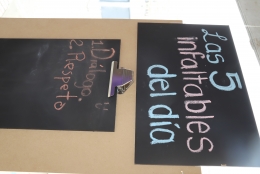 Las 5
infaltables
del día
1. Diálogo
2. Respeto